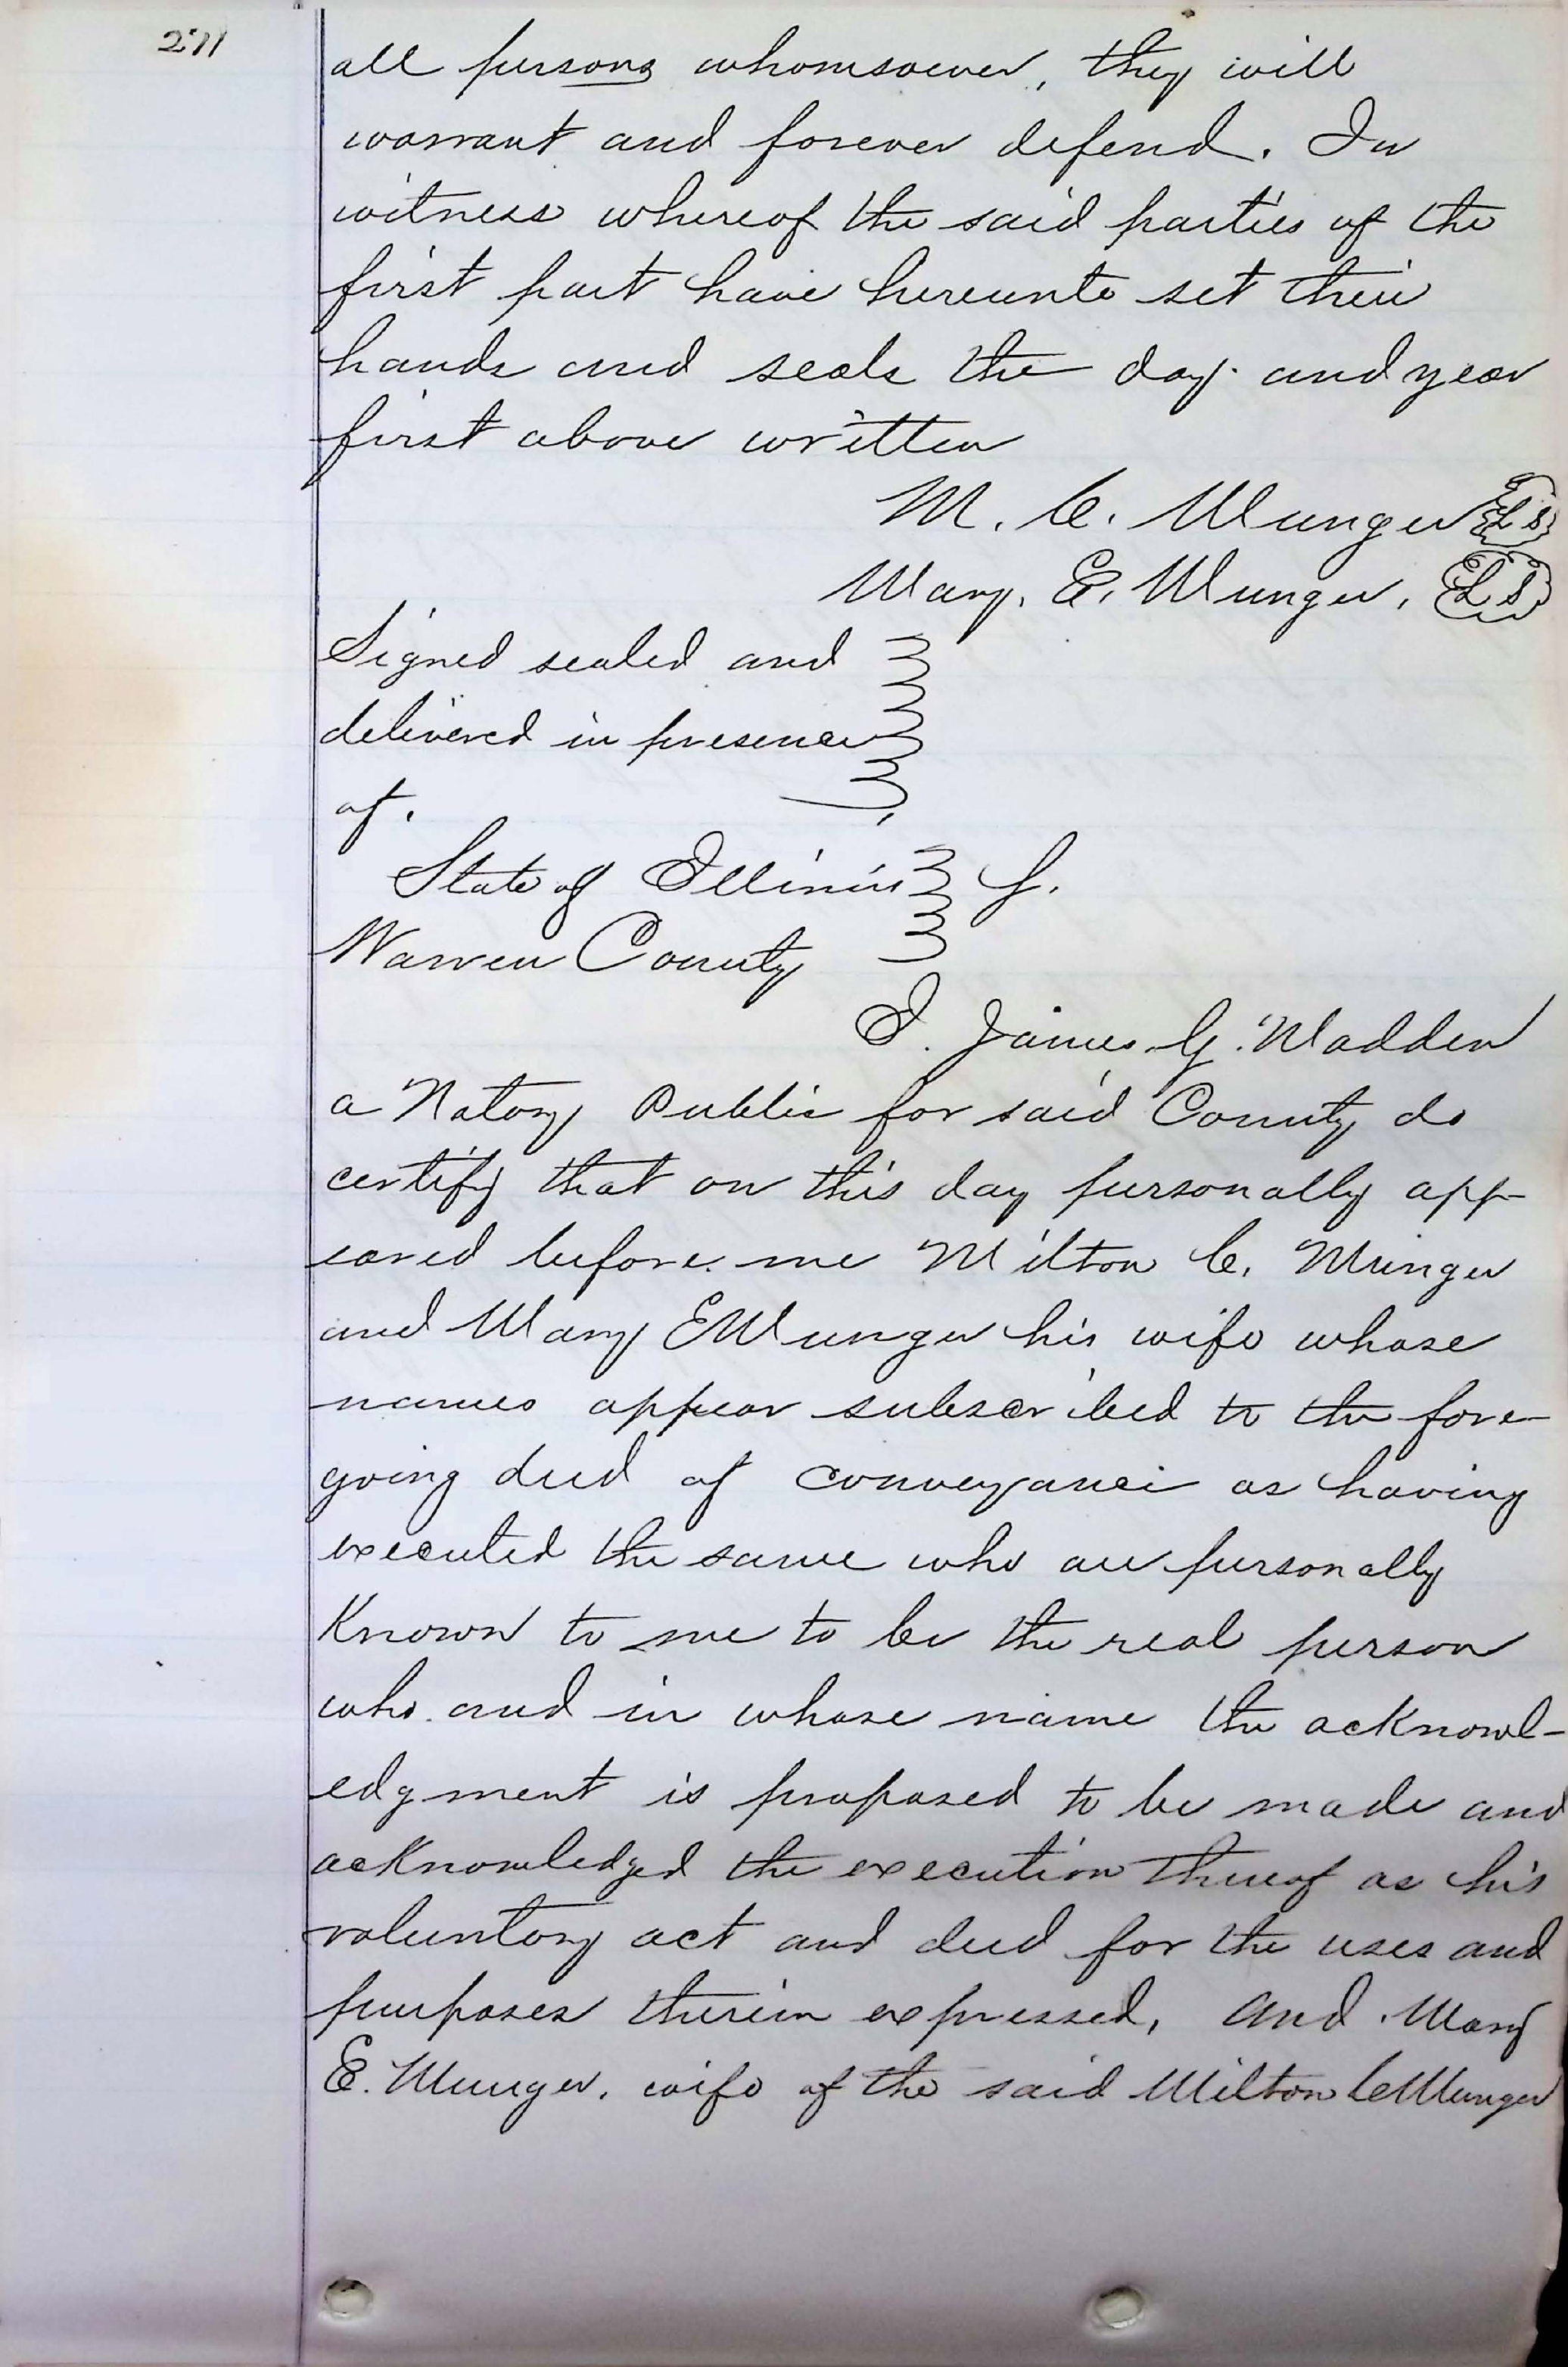 271
all persons whomsoever, they will
warrant and forever defend. In
witness whereof the said parties of the
first part have hereunto set their
hands and seals the day and year
first above written
M. C. Munger L S
Mary. E. Munger, L S
Signed sealed and
delivered in presence
of.
State of Illinois S.
Warren County
I. James. G. Madden
a Notary Public for said County do
certify that on this day personally app-
eared before me Milton C. Munger
and Mary E Munger his wife whose
names appear subscribed to the fore-
going deed of conveyance as having
executed the same who are personally
Known to me to be the real person
who and in whose name the acknowl-
edgment is proposed to be made and
acknowledged the execution thereof as his
voluntary act and deed for the uses and
purposes therein expressed, and Mary
E. Munger, wife of the said Milton C Munger